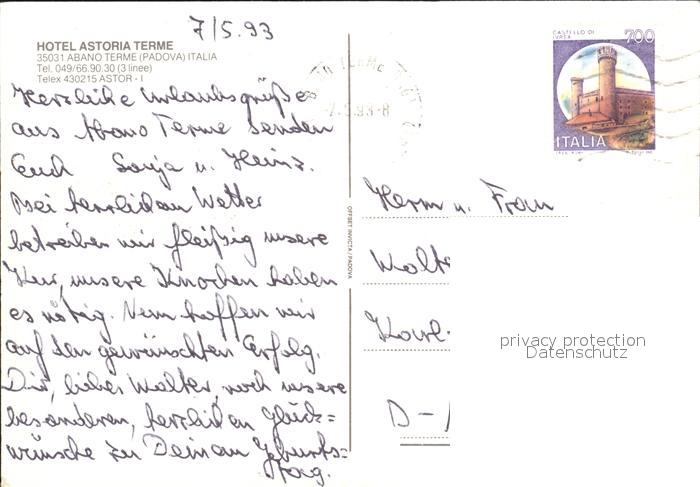 7/5.93
HOTEL ASTORIA TERME
35031 ABANO TERME (PADOVA) ITALIA
Tel. 049/66.90.30 (3 linee)
Telex 430215 ASTOR - I
Herzliche Urlaubsgrüße
aus Abano Terme senden
Euch Sonja u. Heinz.
Bei herrlichem Wetter
betreiben wir fleißig unsere
Kur, unsere Knochen haben
es nötig. Nun hoffen wir
auf den gewünschten Erfolg.
Dir, lieber Walter, noch unsere
besonderen, herzlichen Glück=
wünsche zu Deinem Geburts=
tag.
OFFSET INVICTA / PADOVA
TERME
93-8
CASTELLO DI
IVREA
700
ITALIA
Herrn u. Frau
Walte
Karl-
D-
privacy protection
Datenschutz